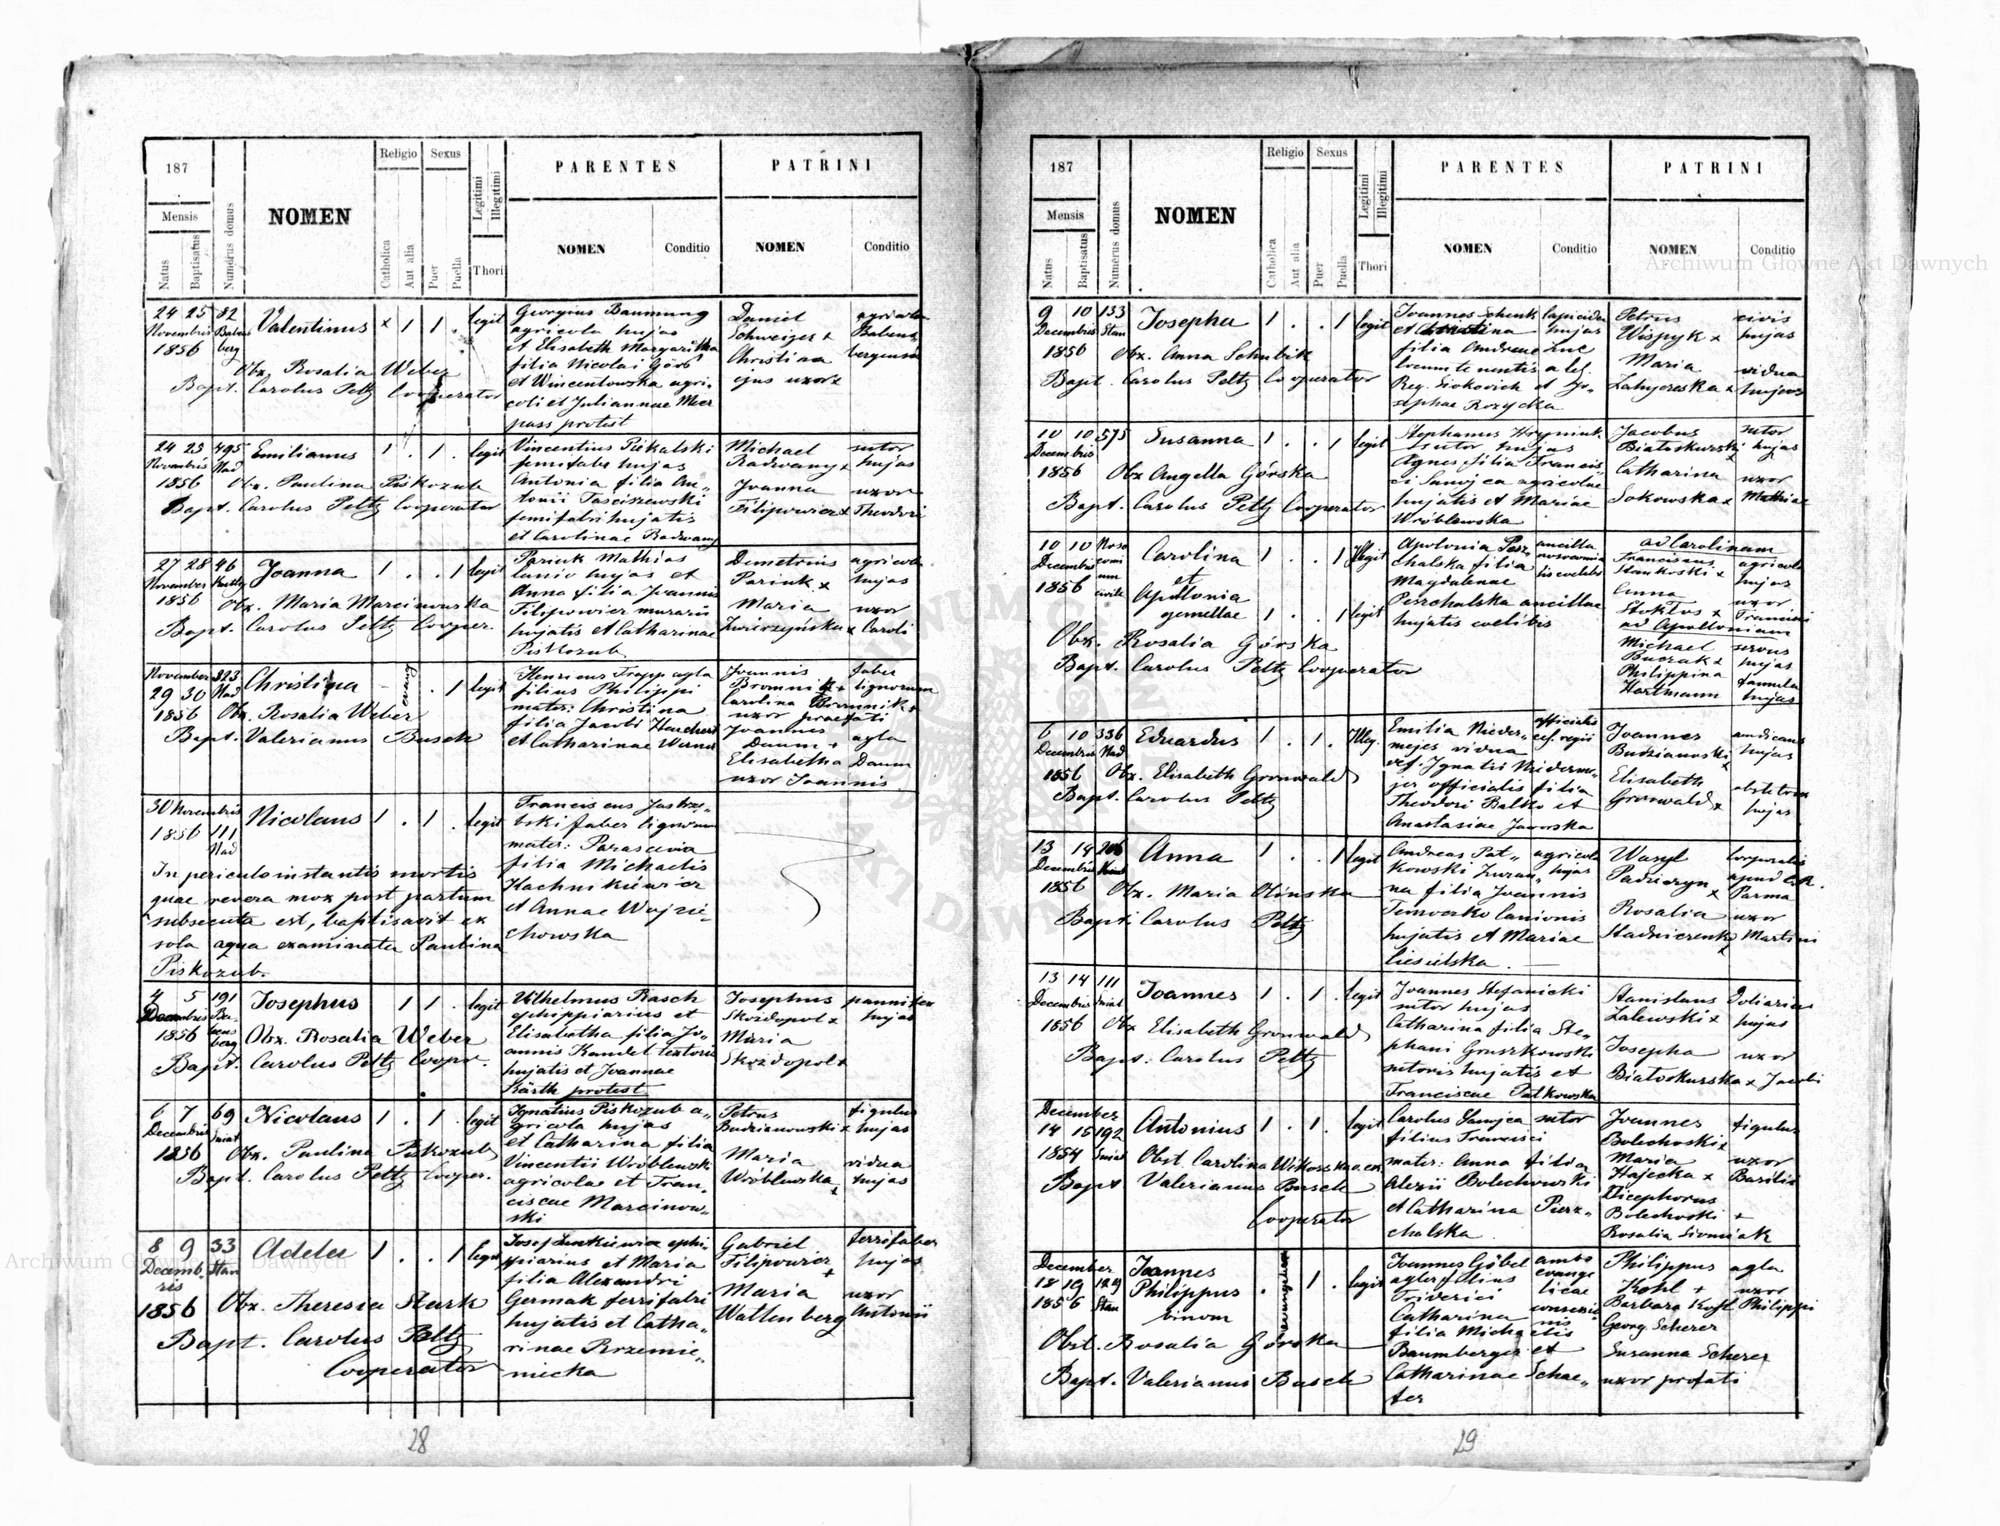 187
Mensis
Natus
Baptisatus
Numerus domus
NOMEN
Religio
Catholica
Aut alia
Sexus
Puer
Puella
Legitimi
Illegitimi
Thori
PARENTES
NOMEN
Conditio
PATRINI
NOMEN
Conditio
24 25 82
Novembris
1856
Valentinus
legit
Obx. Rosalia Weber
Bapt. Carolus Peltz Cooperator
Georgius Baumung
agricola hujas
et Elisabeth Margaritha
filia Nicolai Görs
et Wincentowska agri-
coli et Juliannae Meer
pass protest
Daniel
Schweiger +
Christina
ejus uxor x
agricola
24 25 495
Novembris
1856
Emilianus
legit
Obx. Paulina Piskozub
Bapt. Carolus Peltz Cooperator
Vincentius Piekalski
femifaber hujas
Antonia filia An-
tonii Tasciszewski
femifabri hujatis
et Carolinae Radwany
Michael
Radwany x
Joanna
Filipowicz x
sutor
hujas
uxor
Theodori
27 28 46
November
1856
Joanna
legit
Obx. Maria Marcinowska
Bapt. Carolus Peltz Cooper.
Pariuk Mathias
lanio hujas et
Anna filia Joannis
Filipowicz murarii
hujatis et Catharinae
Piskozub
Demetrius
Pariuk x
Maria
Zwierzyńska x
agricola
hujas
uxor
Caroli
November 323
29 30
1856
Christina
evang
legit
Obx. Rosalia Weber
Bapt. Valerianus Busch
Henricus Trapp agla
filius Philippi
mater: Christina
filia Jacobi
et Catharinae
Joannis
Bromnik +
Carolina Bromnik +
uxor praefati
Joannes
Daum +
Elisabetha Daum
uxor Joannis
faber
lignorum
agla
30 Novembris
1856 111
Nicolaus
legit
In periculo instantis mortis
quae revera mox post partum
subsecuta est, baptisavit ex
sola aqua examinata Paulina
Piskozub.
Franciscus Jastrzy-
bski faber lignorum
mater: Parascevia
filia Michaelis
Kachnikiewicz
et Annae Wojcie-
chowska
4 5 191
Decembris
1856
Josephus
legit
Obx. Rosalia Weber
Bapt. Carolus Peltz Cooper.
Wilhelmus Rasch
ephippiarius et
Elisabetha filia Jo-
annis Kandel textoris
hujatis et Joannae
Kärth protest
Josephus
Skozdopol x
Maria
Skozdopol +
pannifex
hujas
6 7 69
Decembris
1856
Nicolaus
legit
Obx. Paulina Piskozub
Bapt. Carolus Peltz Cooper.
Ignatius Piskozub a-
gricola hujas
et Catharina filia
Vincentii Wróblewski
agricolae et Fran-
ciscae Marcinow-
ski
Petrus
Budzianowski x
Maria
Wróblewska +
figulus
hujas
vidua
hujas
8 9 33
Decemb.
ris
1856
Adela
legit
Obx. Theresia Stark
Bapt. Carolus Peltz
Cooperator
Josef Zinkiewicz ephi-
ppiarius et Maria
filia Alexandri
Germak ferrifabri
hujatis et Catha-
rinae Krzemie-
niecka
Gabriel
Filipowicz +
Maria
Wattenberg
ferrifaber
hujas
uxor
Antonii
28
187
Mensis
Natus
Baptisatus
Numerus domus
NOMEN
Religio
Catholica
Aut alia
Sexus
Puer
Puella
Legitimi
Illegitimi
Thori
PARENTES
NOMEN
Conditio
PATRINI
NOMEN
Conditio
9 10 133
Decembris
1856
Josepha
legit
Obx. Anna Schubik
Bapt. Carolus Peltz Cooperator
Joannes Schenk lapicida
et Christina hujas
filia Andreae
Petrus
Wispyk x
Maria
civis
hujas
vidua
hujas
10 10 575
Decembris
1856
Susanna
legit
Obx Angella Górska
Bapt. Carolus Peltz Cooperator
Stephanus Hryniuk
sutor hujas
Agnes filia Francis-
ci Sanojca agricolae
hujatis et Mariae
Wróblewska
Jacobus
Białoskurski x
Catharina
Sokowska x
sutor
hujas
uxor
Mathiae
10 10 Noso
comi
um
civile
Decembris
1856
Carolina
et
Apollonia
gemellae
Illegit
legit
Obx. Rosalia Górska
Bapt. Carolus Peltz Cooperator
Apolonia Pesz-
chalska filia
Magdalenae
Peszchalska ancillae
hujatis coelibis
ancilla
ad Carolinam
Franciscus
Stankoski x
Anna
Stoktos x
ad Apolloniam
Michael
Buczak x
Philippina
Hartmann
agricola
hujas
uxor
Francisci
servus
hujas
famula
hujas
6 10 336
Decembris
1856
Eduardus
Illeg.
Obx. Elisabeth Gronwald
Bapt. Carolus Peltz
Emilia Nieder-
mejer vidua
def. Ignatii Niederme-
jer officialis filia
Theodori Balko et
Anastasiae Jaworska
officialis
Joannes
Budzianowski x
Elisabeth
Gronwald x
hujas
obstetrix
hujas
13 14 206
Decembris
1856
Anna
legit
Obx. Maria Olinska
Bapt. Carolus Peltz
Andreas Pat-
kowski
na filia Joannis
Temoczko lanionis
hujatis et Mariae
Ciesielska
agricola
hujas
Wasyl
Padzieryn x
Rosalia
Stadniczenko x
Corporalis
apud C.R.
Parma
uxor
Martini
13 14 111
Decembris
1856
Joannes
legit
Obx Elisabeth Gronwald
Bapt. Carolus Peltz
Joannes Stefanicki
sutor hujas
Catharina filia Ste-
phani Gruszkowski
sutoris hujatis et
Franciscae Patkowska
Stanislaus
Zalewski x
Josepha
Białoskurska x
Doliarius
hujas
uxor
Jacobi
December
14 15 192
1854
Antonius
legit
Obst. Carolina
Bapt Valerianus Busch
Cooperator
Carolus Sanojca sutor
filius Francisci
mater: Anna filia
Alexii Bolechowski
et Catharina Pierz-
chalska
Joannes
Bolechoski x
Maria
Hajecka x
Nicephorus
Bolechoski +
Rosalia
figulus
uxor
Basilii
December
18 19 129
1856
Joannes
Philippus
binom
evangelica
legit
Obst. Rosalia Górska
Bapt. Valerianus Busch
Joannes Göbel
agler filius
Friderici
Catharina
filia Michaelis
Baumberger et
Catharinae Schae-
fer
ambo
evange
licae
Philippus
Kohl +
Barbara Kohl
Georg Scherer
Susanna Scherer
uxor prefati
agla
uxor
Philippi
29
Archiwum Główne Akt Dawnych
Archiwum Główne Akt Dawnych